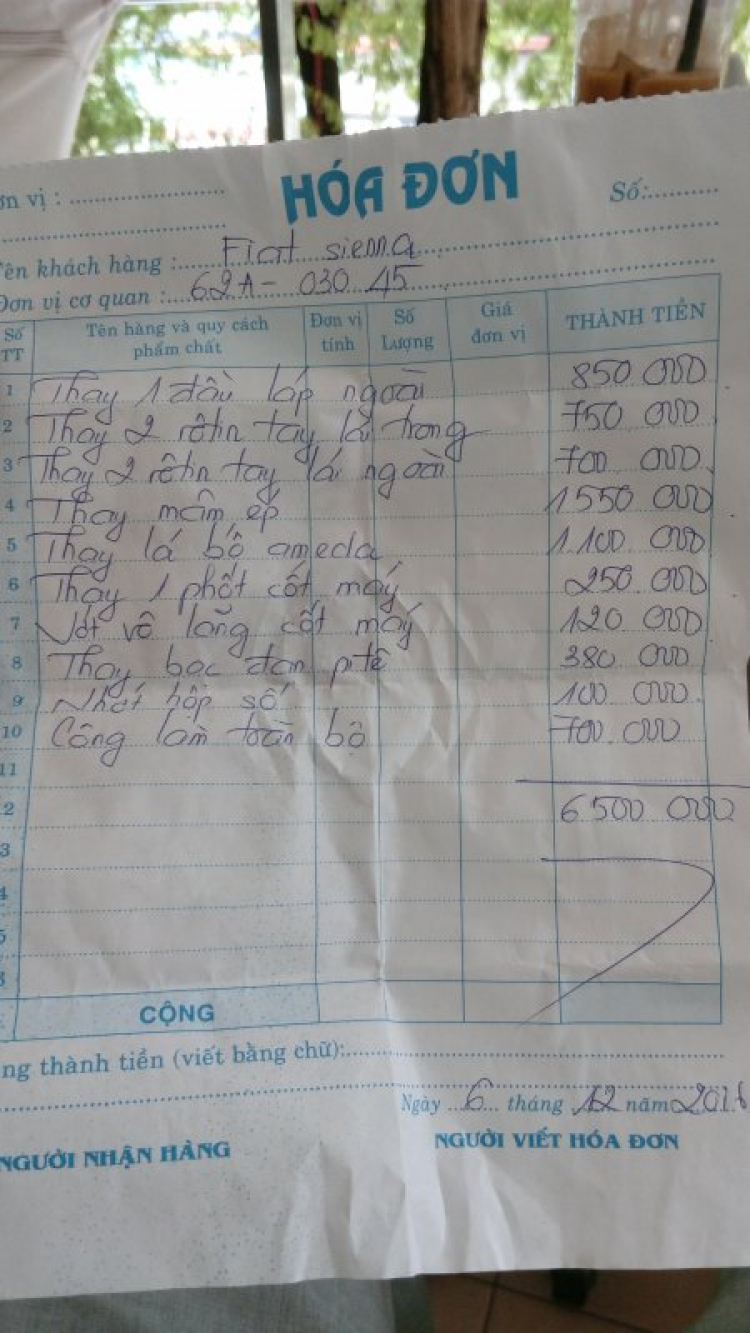 HÓA ĐƠN
ơn vị : Số:
Tên khách hàng : Fiat siena
Đơn vị cơ quan : 62A - 030 45
Số TT Tên hàng và quy cách phẩm chất Đơn vị tính Số Lượng Giá đơn vị THÀNH TIỀN
1 Thay 1 đầu láp ngoài 850 000
2 Thay 2 rôtin tay lái trong 750 000
3 Thay 2 rôtin tay lái ngoài 700 000
4 Thay mâm ép 1550 000
5 Thay lá bố ameda 1.100 000
6 Thay 1 phốt cốt máy 250 000
7 Vớt vô lăng cốt máy 120 000
8 Thay bạc đạn pitê 380 000
9 Nhớt hộp số 100 000
10 Công làm toàn bộ 700.000
11
2 6 500 000
3
4
5
CỘNG
ng thành tiền (viết bằng chữ):
Ngày 6 tháng 12 năm
NGƯỜI NHẬN HÀNG NGƯỜI VIẾT HÓA ĐƠN